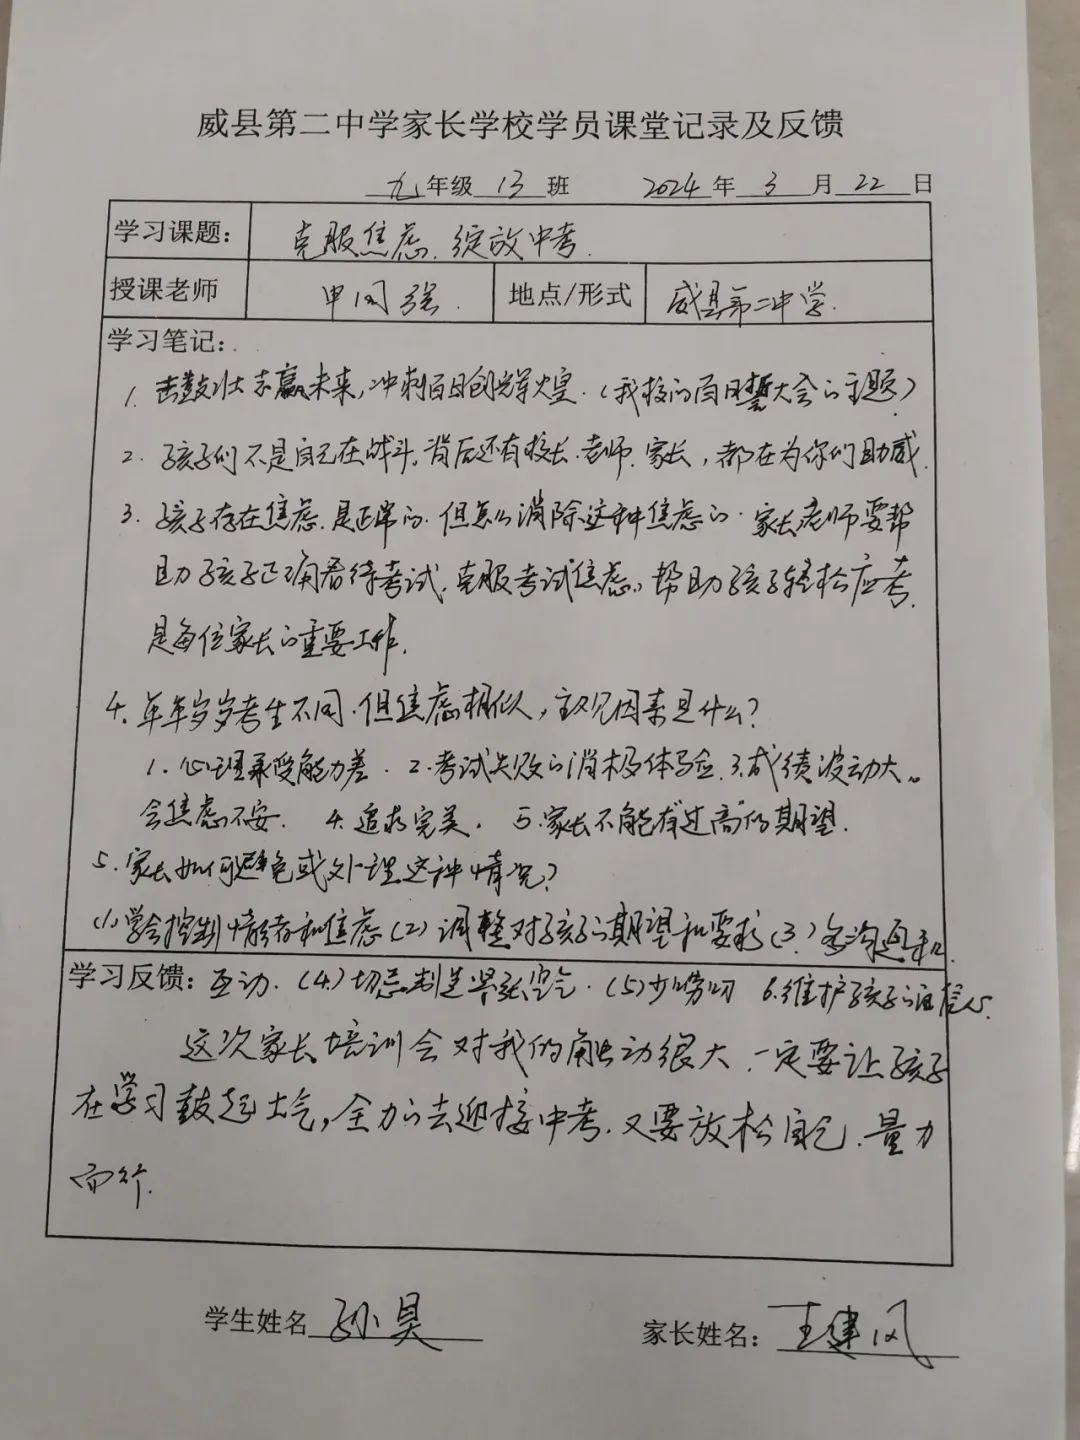 威县第二中学家长学校学员课堂记录及反馈
九年级 13 班 2024 年 3 月 22 日
学习课题： 克服焦虑.绽放中考.
授课老师 申国强. 地点/形式 威县第二中学.
学习笔记：
1. 击鼓壮志赢未来,冲刺百日创辉煌.(我校的百日誓大会的主题)
2. 孩子们不是自己在战斗,背后还有校长.老师.家长,都在为你们助威.
3. 孩子存在焦虑.是正常的.但怎么消除这种焦虑的.家长老师要帮
助孩子正确看待考试.克服考试焦虑。帮助孩子轻松应考.
是每位家长的重要工作.
4. 年年岁岁考生不同.但焦虑相似,主观因素是什么?
1.心理承受能力差.2.考试失败的消极体验.3.成绩波动大。
会焦虑不安. 4.追求完美. 5.家长不能有过高的期望.
5.家长如何避免或处理这种情况?
(1)学会控制情绪和焦虑(2)调整对孩子的期望和要求(3)多沟通和
学习反馈：互动.(4)切忌制造紧张空气.(5)少唠叨 6.维护孩子的自信心.
这次家长培训会对我的触动很大.一定要让孩子
在学习鼓起士气,全力的去迎接中考.又要放松自己.量力
而行.
学生姓名 孙昊 家长姓名：王建风